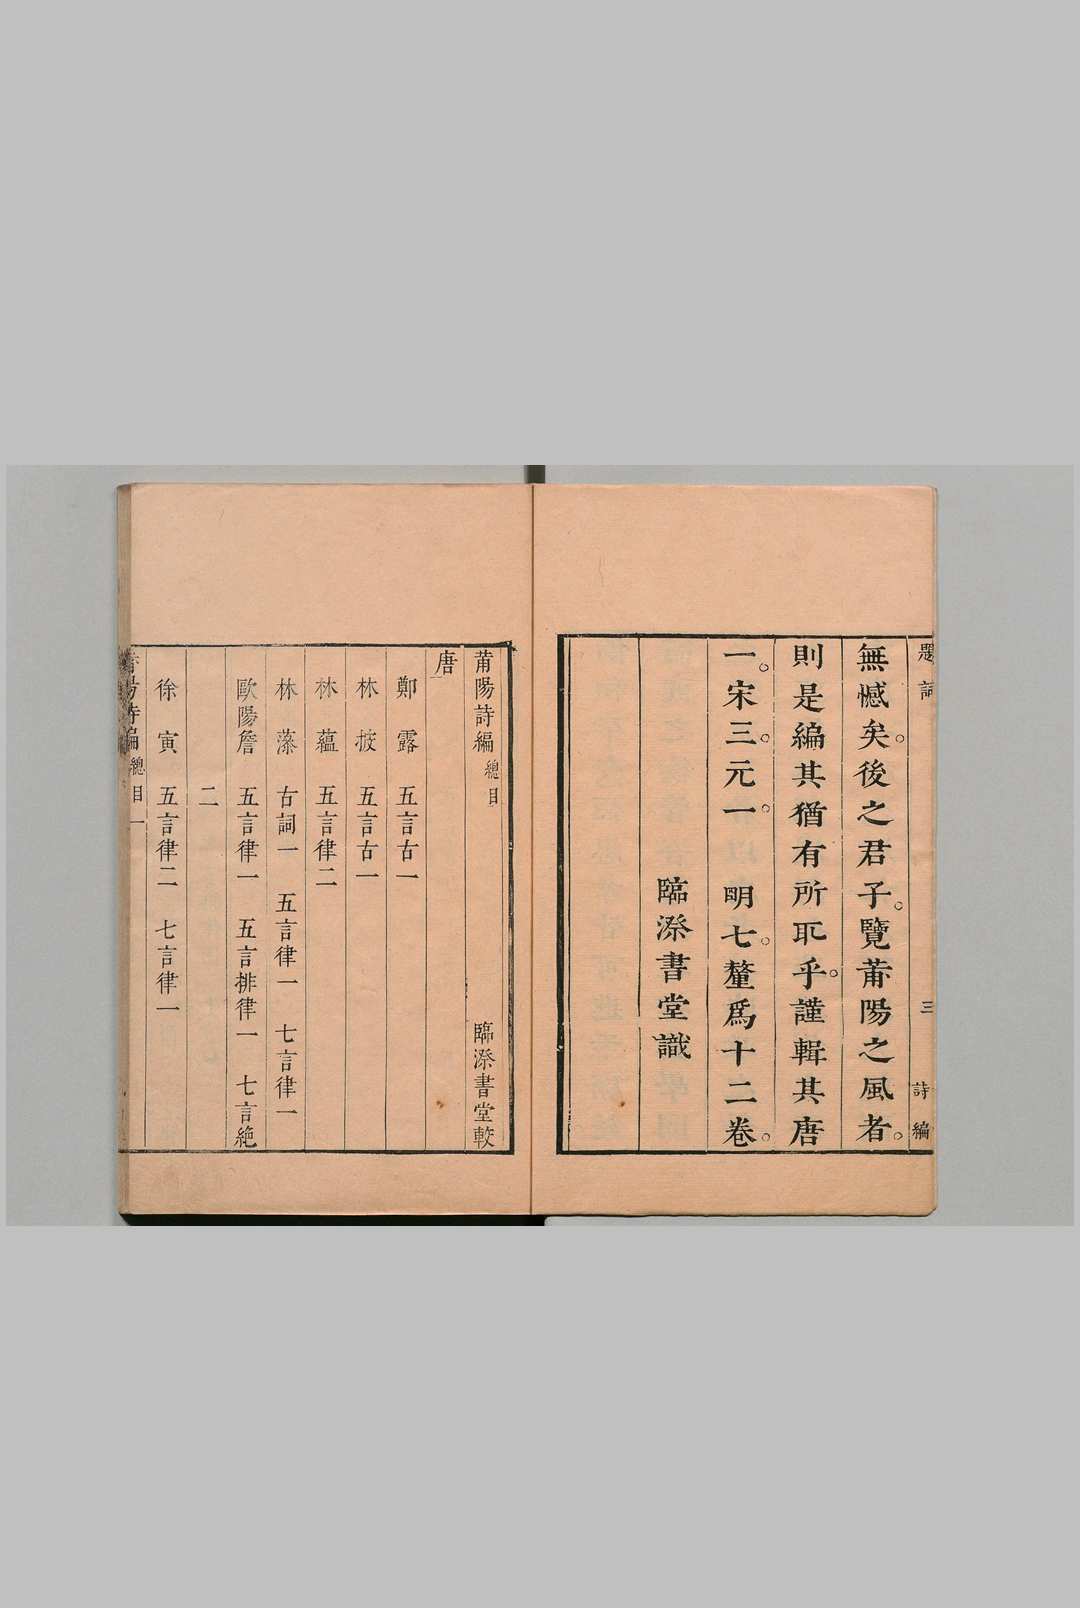 題詞 三 詩編
無憾矣。後之君子。覽莆陽之風者。
則是編其猶有所取乎。謹輯其唐
一。宋三。元一。明七。釐爲十二卷。
臨漈書堂識
莆陽詩編 總目 臨漈書堂較
唐
鄭露 五言古一
林披 五言古一
林蘊 五言律二
林藻 古詞一 五言律一 七言律一
歐陽詹 五言律一 五言排律一 七言絶
二
徐寅 五言律二 七言律一
莆陽詩編 總目 一